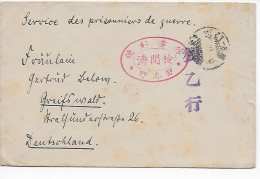 Service des prisonniers de guerre.
Fräulein
Gertrud Below.
Greifswald.
Stralsunderstraße 26.
Deutschland.
檢閲濟
乙行